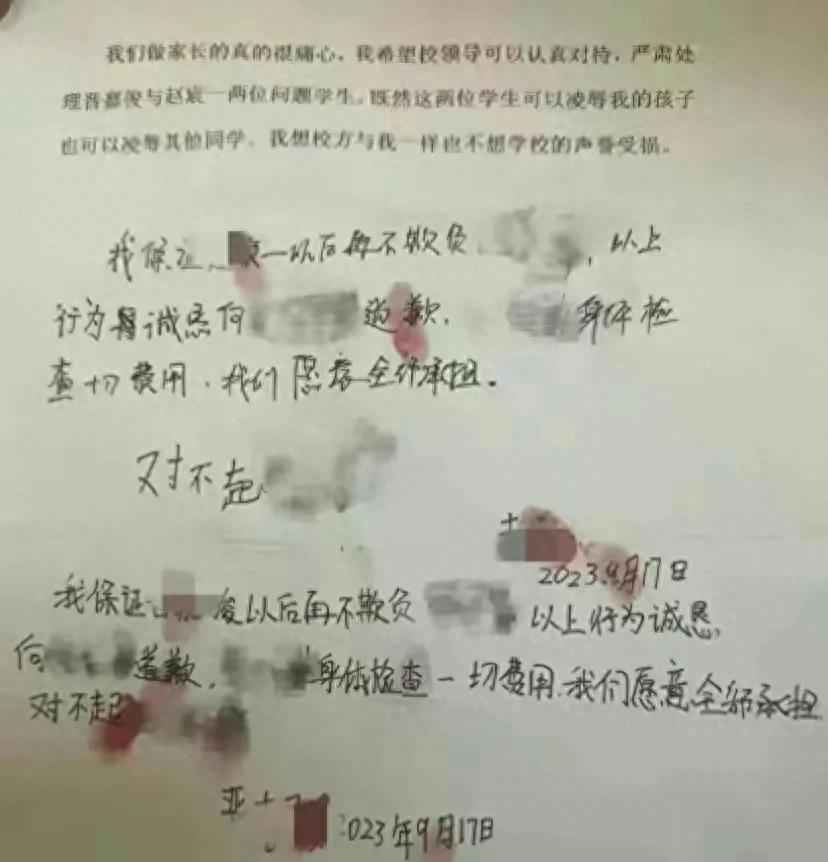 我们做家长的真的很痛心，我希望校领导可以认真对待，严肃处
理晋嘉俊与赵宸一两位问题学生。既然这两位学生可以凌辱我的孩子
也可以凌辱其他同学。我想校方与我一样也不想学校的声誉受损。
我保证 一以后再不欺负 ，以上
行为 诚恳向 道歉， 身体检
查一切费用，我们愿意全部承担。
对不起
2023.9月17日
我保证 俊以后再不欺负 以上行为诚恳
向 道歉， 身体检查一切费用，我们愿意全部承担
对不起
023年9月17日